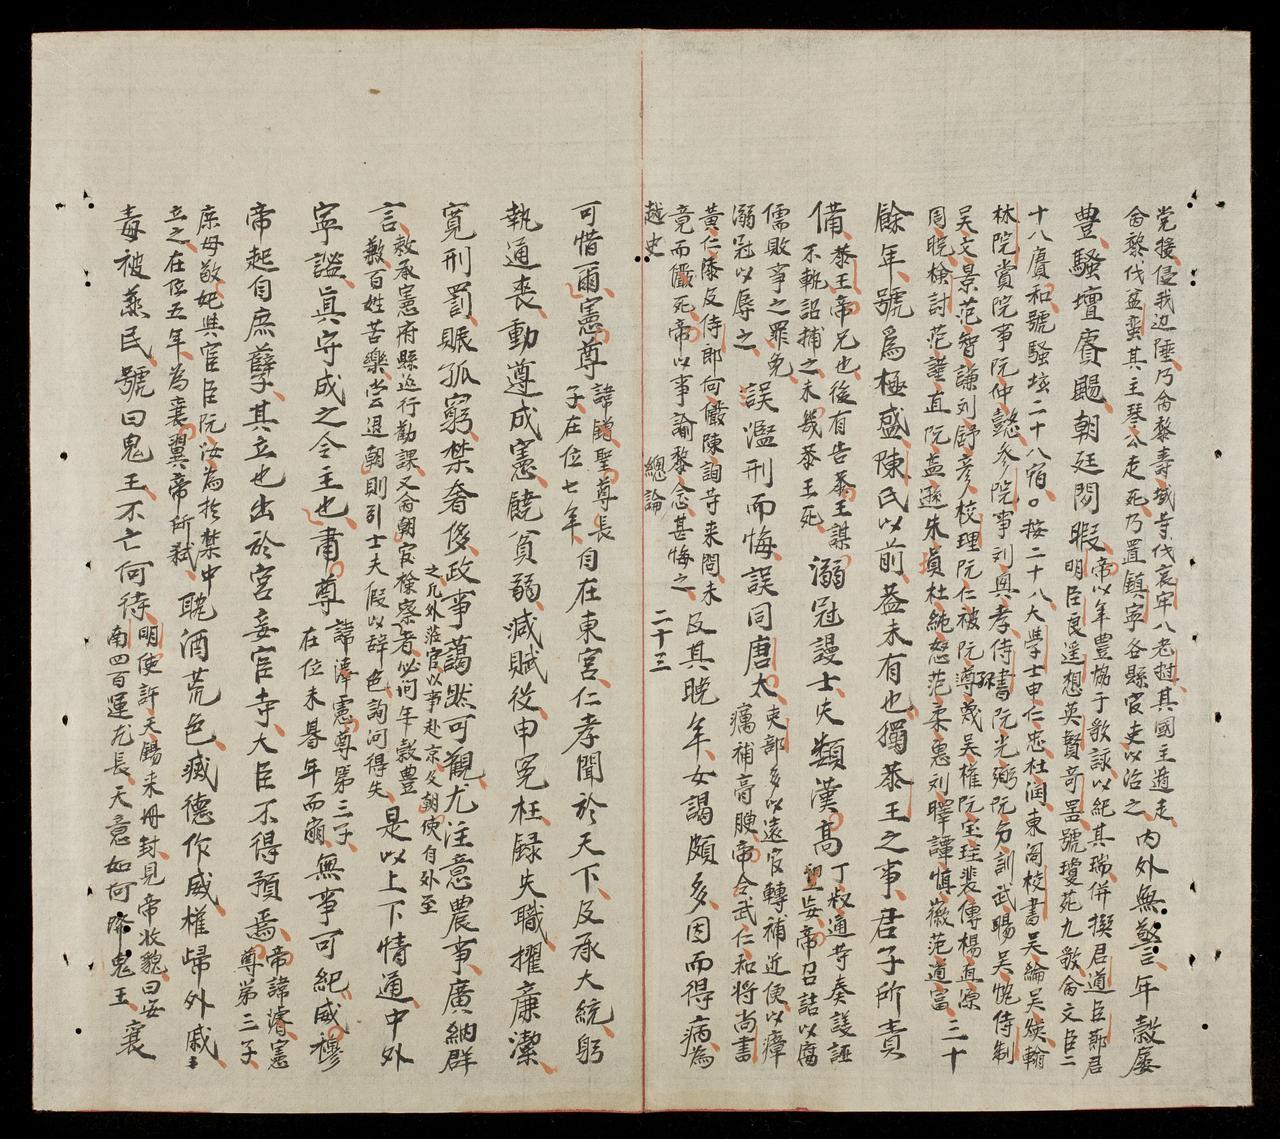 党援侵我边陲乃命黎壽域等伐哀牢八老撾其國主遁走
命黎伐盆蛮其主琴公走死乃置鎮寧各縣官吏以治之
内外無警三年穀屡
豊騷壇賡颺朝廷閒暇
帝以年豊愧于歌詠以紀其瑞併撰君道臣節君
明臣良遥想英賢奇罢號瓊苑九歌命文臣二
十八賡和號騷坛二十八宿。按二十八大學士申仁忠杜潤東阁校書吴綸吴焕翰
林院賞院事阮仲懿参院事刘興孝侍書阮光弼阮芳訓武暘吴忱侍制
吴文景范智謙刘舒彦校理阮仁被阮孫蔑吴權阮宝珪裴傳楊直源
周晥検討范謹直阮益遜朱塤杜純恕范柔惠刘曎譚慎徽范道富
三十
餘年號爲極盛陳氏以前盖未有也獨恭王之事君子所責
備
恭王帝兄也後有告恭王謀
不軌詔捕之未幾恭王死
溺冠謾士失類漢高
丁叔通等奏謖誣
望妄帝召詰以腐
儒敗事之罪免
溺冠以辱之
誤濫刑而悔誤同唐太
吏部多以遠官轉補近使以瘴
癘補膏腴帝令武仁和将尚書
黄仁倐反侍郎何儼陳詢等来問未
竟而儼死帝以事諭黎念甚悔之
及其晚年女謁頗多因而得病為
越史
總論
二十三
可惜爾憲尊
諱鏳聖尊長
子在位七年
自在東宮仁孝聞於天下及承大統躬
執通喪動遵成憲饒貧弱減賦役申冤枉録失職擢廉潔
寛刑罰賑孤窮禁奢侈政事藹然可觀尤注意農事廣納群
言
敕承憲府縣巡行勸課又命朝官檢察者必问年穀豊
歉百姓苦樂尝退朝則引士夫假以辞色詢问得失
之凡外莅官以事赴京及朝使自外至
是以上下情通中外
寧謐真守成之令主也肅尊
諱㵮憲尊第三子
在位未朞年而崩
無事可紀威穆
帝起自庶孽其立也出於宮妾宦寺大臣不得預焉
帝諱濬憲
尊第三子
庶母敬妃與宦臣阮汝為於禁中
立之在位五年為襄翼帝所弑
耽酒荒色臧德作威權歸外戚
毒被蒸民號曰鬼王不亡何待
明使許天錫来冊封見帝状貌曰安
南四百運尤長天意如何降鬼王
襄